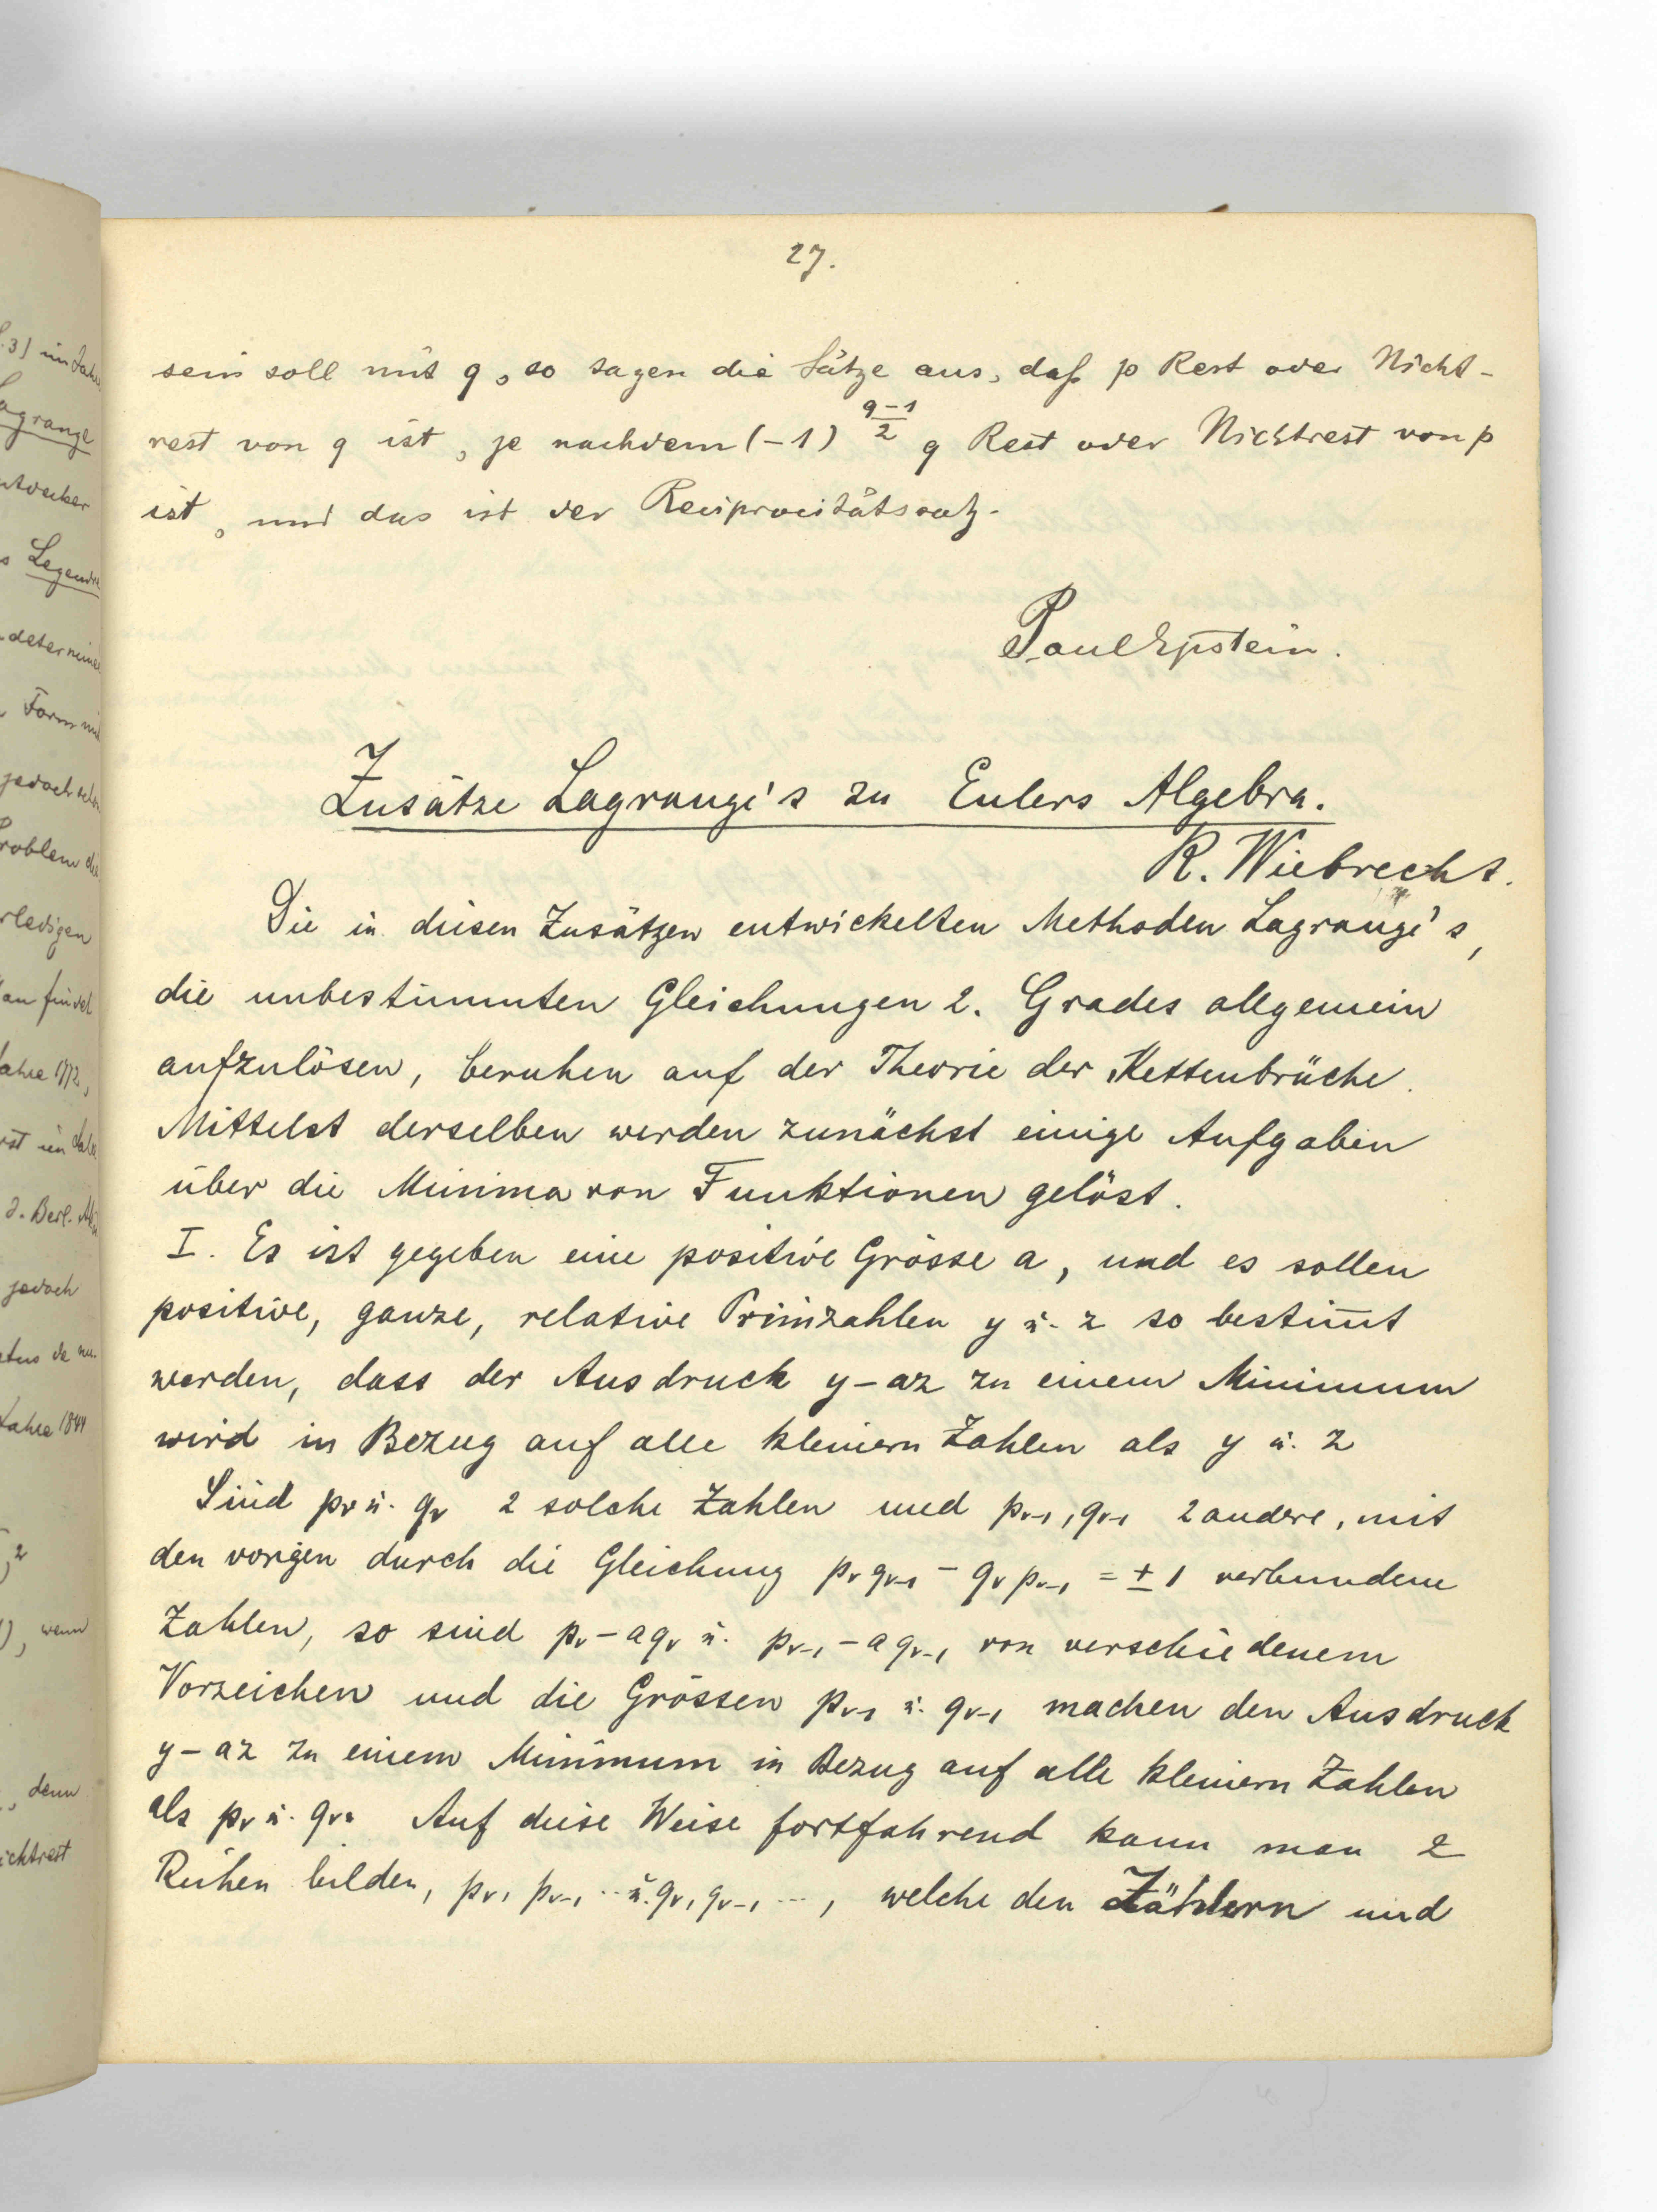 27.
sein soll mit q, so sagen die Sätze aus, daß p Rest oder Nicht-
rest von q ist, je nachdem (-1)^{\frac{q-1}{2}} q Rest oder Nichtrest von p
ist, und das ist der Reciprocitätssatz.
Paul Epstein.
Zusätze Lagrange's zu Eulers Algebra.
R. Wiebrecht.
Die in diesen Zusätzen entwickelten Methoden Lagrange's,
die unbestimmten Gleichungen 2. Grades allgemein
aufzulösen, beruhen auf der Theorie der Kettenbrüche.
Mittelst derselben werden zunächst einige Aufgaben
über die Minima von Funktionen gelöst.
I. Es ist gegeben eine positive Grösse a, und es sollen
positive, ganze, relative Primzahlen y u. z so bestim̄t
werden, dass der Ausdruck y-az zu einem Minimum
wird in Bezug auf alle kleinern Zahlen als y u. z
Sind pᵥ u. qᵥ 2 solche Zahlen und pᵥ₋₁, qᵥ₋₁ 2 andere, mit
den vorigen durch die Gleichung pᵥ qᵥ₋₁ - qᵥ pᵥ₋₁ = ± 1 verbundene
Zahlen, so sind pᵥ - a qᵥ u. pᵥ₋₁ - a qᵥ₋₁ von verschiedenem
Vorzeichen und die Grössen pᵥ₋₁ u. qᵥ₋₁ machen den Ausdruck
y-az zu einem Minimum in Bezug auf alle kleinern Zahlen
als pᵥ u. qᵥ. Auf diese Weise fortfahrend kann man 2
Reihen bilden, pᵥ, pᵥ₋₁ ... u. qᵥ, qᵥ₋₁ ..., welche den Zählern und
Lagrange
Legendre
determine
Form
jedoch
Problem
erledigen
findet
Jahre 1772,
d. Berl.
jedoch
Jahre 1844
2
), wenn
, denn